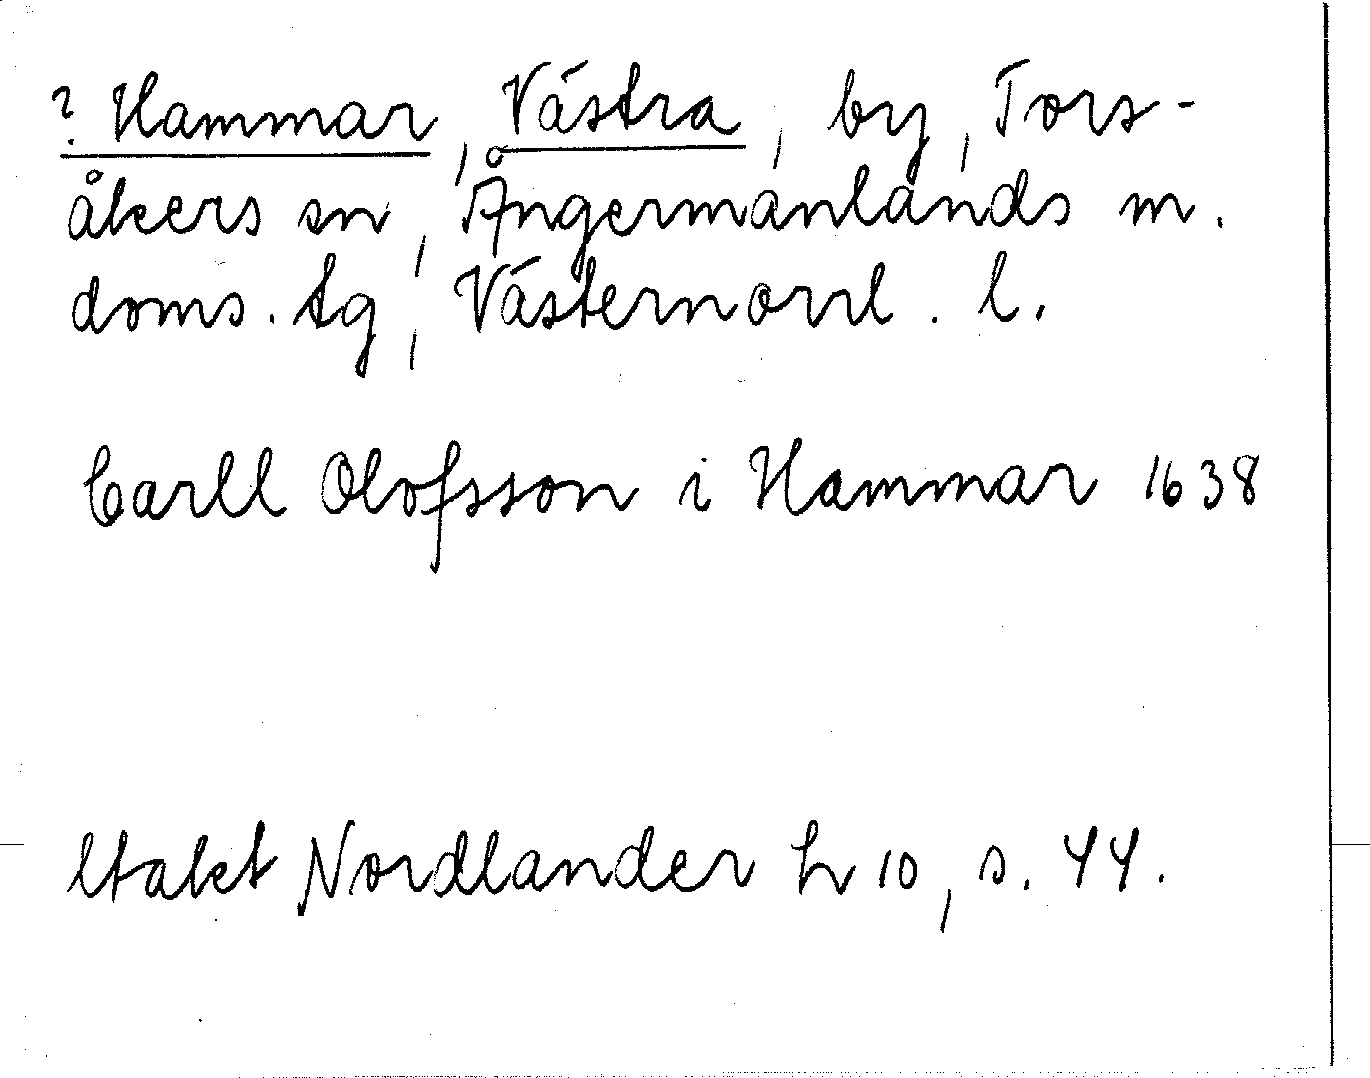 ? Hammar, Västra, by, Tors-
åkers sn, Ångermanlands m.
doms. tg, Västernorrl. l.
Carll Olofsson i Hammar 1638
Nordlander 10, s. 44.